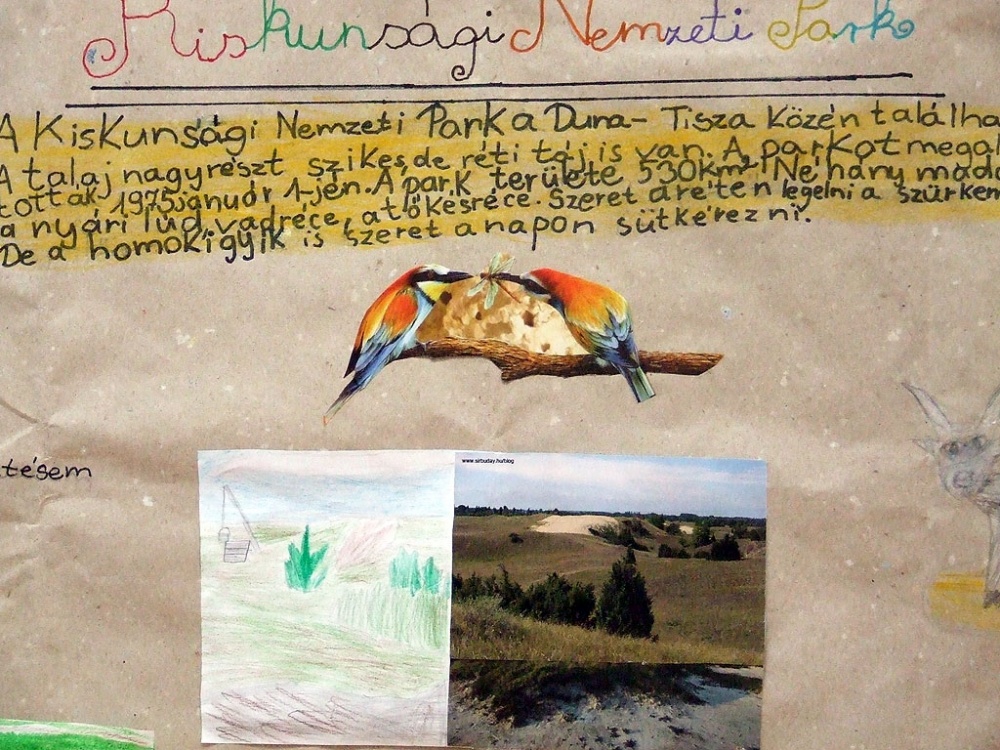 Kiskunsági Nemzeti Park
A Kiskunsági Nemzeti Park a Duna- Tisza Közén találha
A talaj nagyrészt szikes, de réti táj is van. A parkot megal
tották 1975 január 1-jén. A park területe 530km². Néhány madá
a nyári lúd, vadréce, a tőkésréce. Szeret a réten legelni a szürkem
De a homoki gyík is szeret a napon sütkérezni.
tésem
www.sirbuday.hu/blog